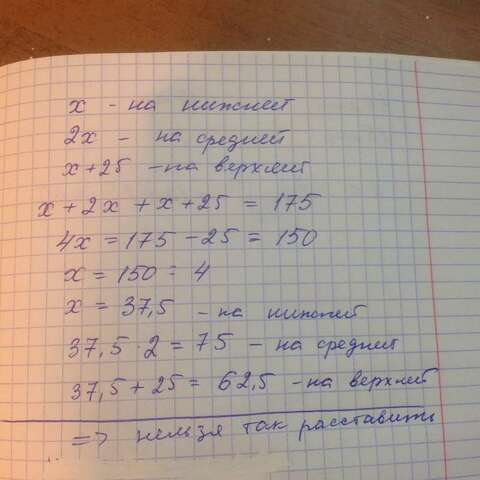 x - на нижней
2x - на средней
x + 25 - на верхней
x + 2x + x + 25 = 175
4x = 175 - 25 = 150
x = 150 : 4
x = 37,5 - на нижней
37,5 · 2 = 75 - на средней
37,5 + 25 = 62,5 - на верхней
=> нельзя так расставить